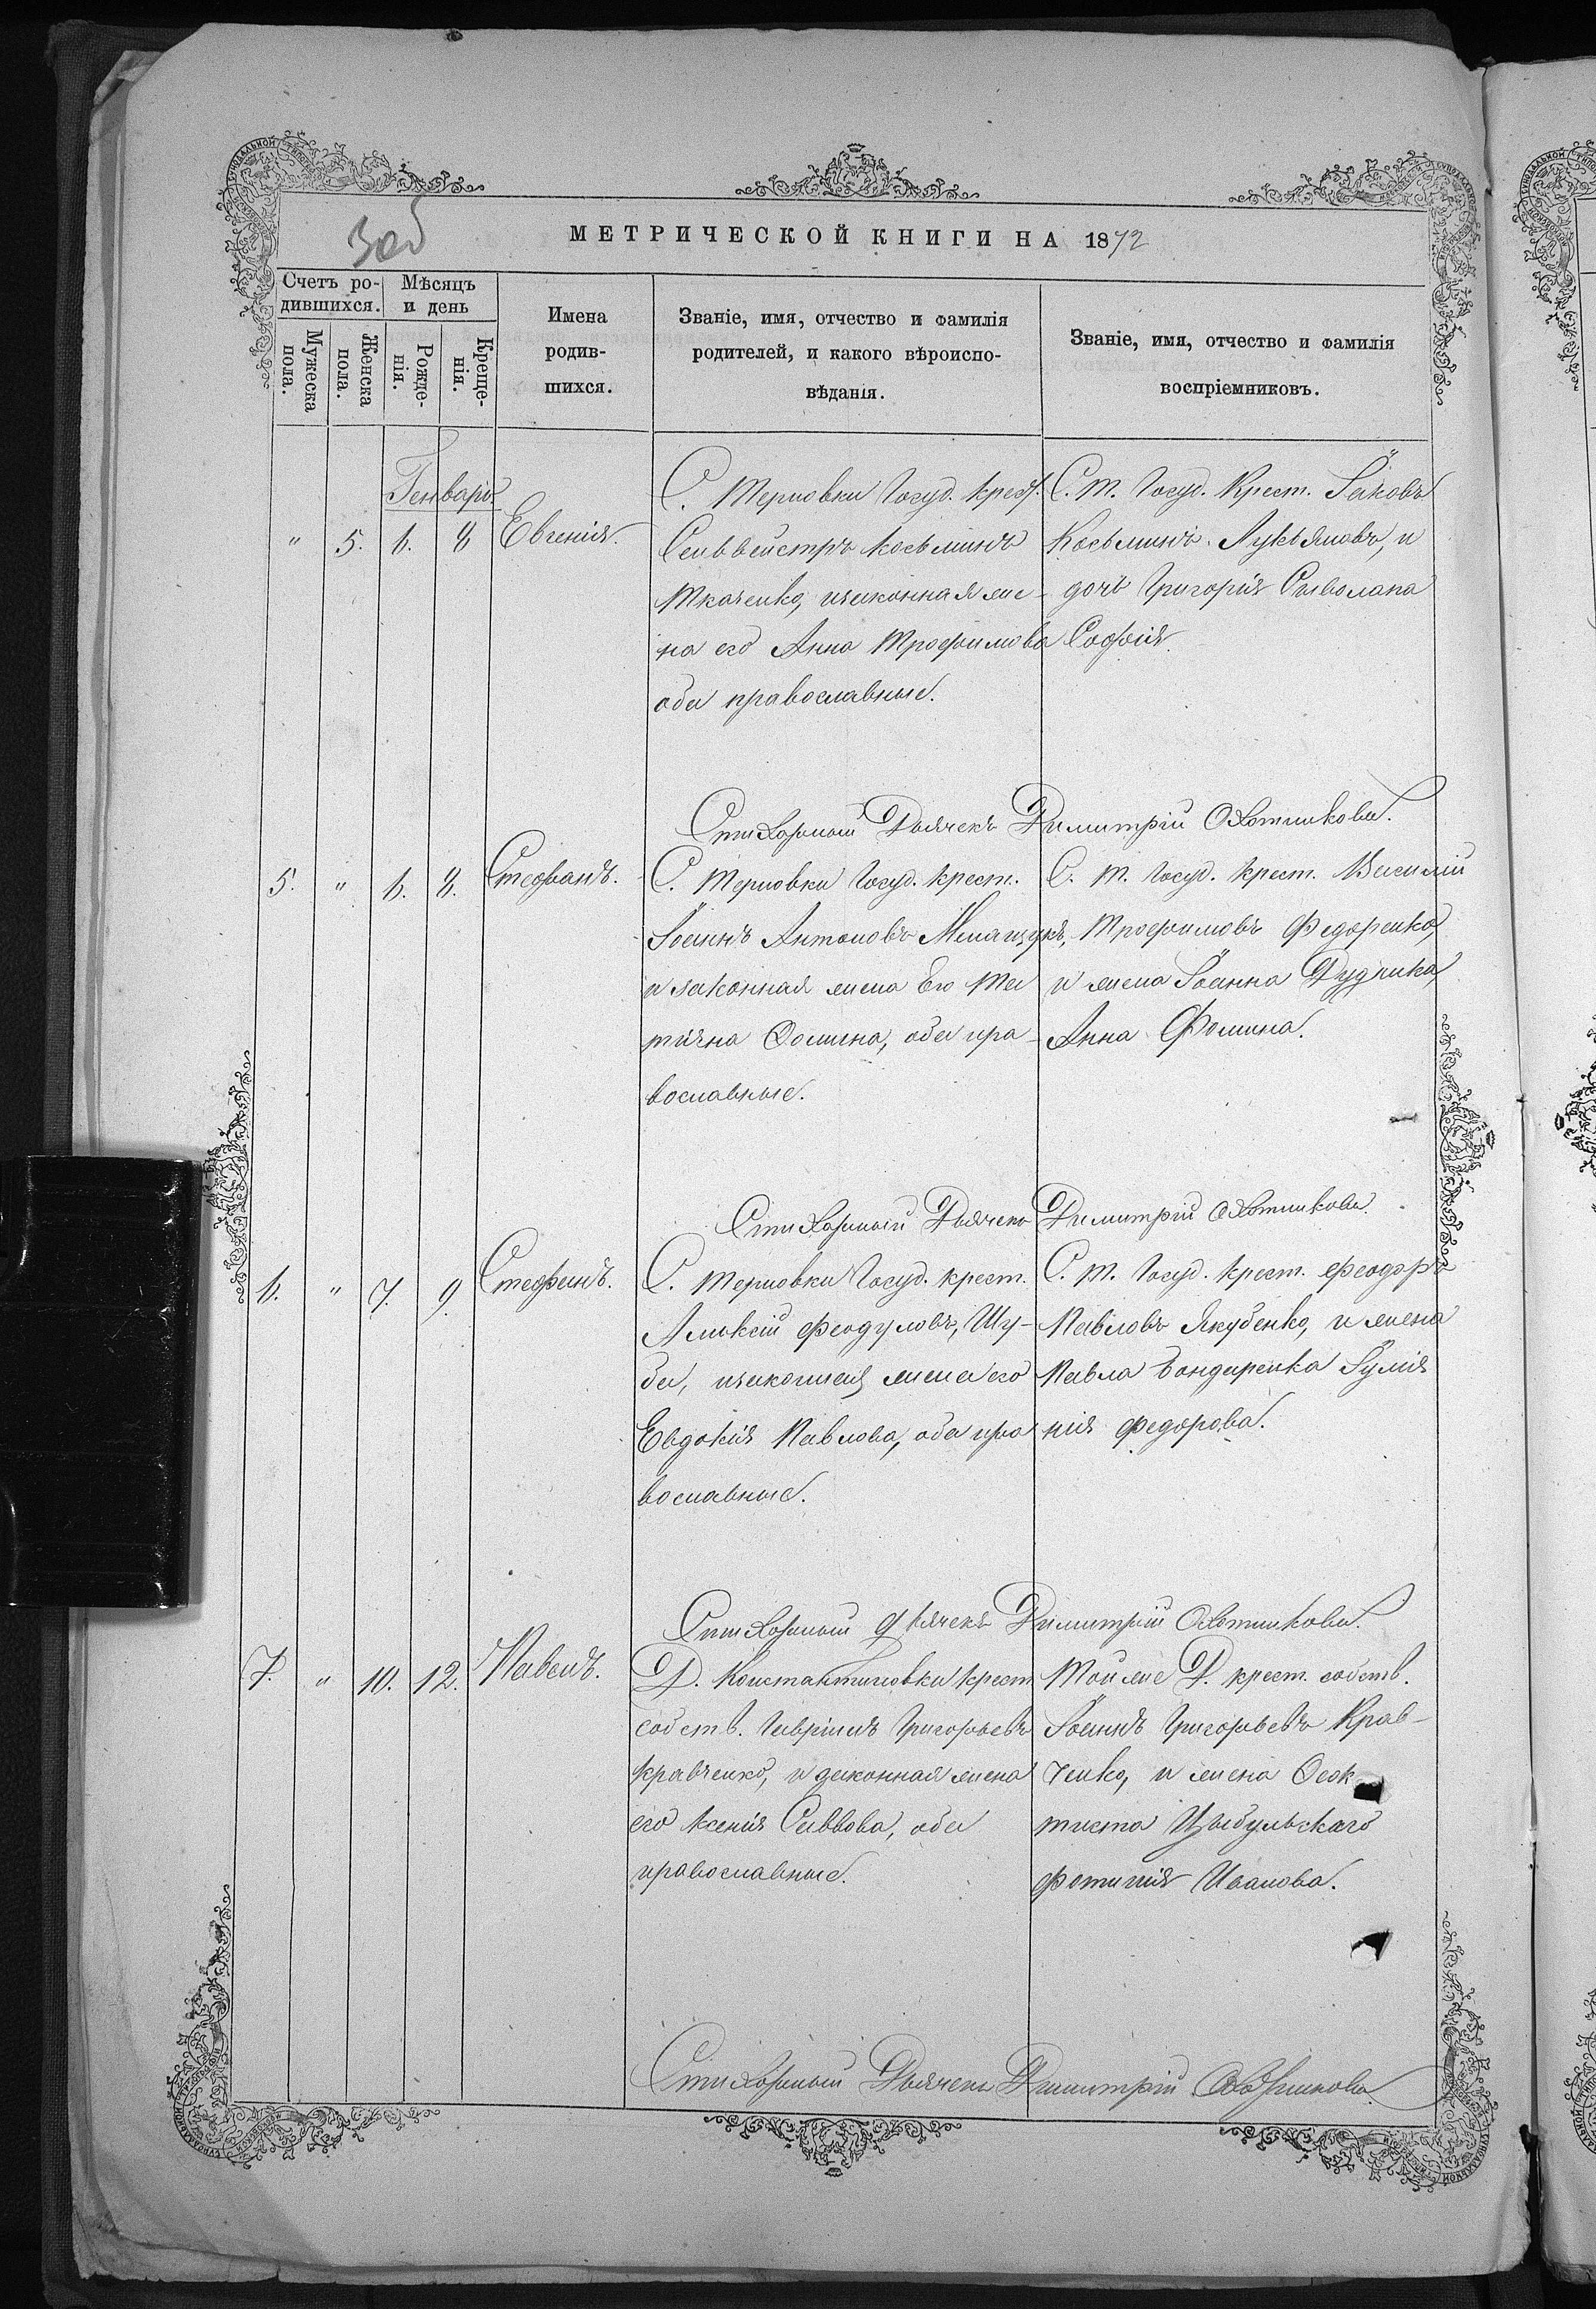 МЕТРИЧЕСКОЙ КНИГИ НА 1872
Счетъ ро-
дившихся.
Мѣсяцъ
и день
Мужеска
пола.
Женска
пола.
Рожде-
нія.
Креще-
нія.
Имена
родив-
шихся.
Званіе, имя, отчество и фамилія
родителей, и какого вѣроиспо-
вѣданія.
Званіе, имя, отчество и фамилія
воспріемниковъ.
Генваря
" 5. 6. 8 Евгенія.
С. Терновки Госуд. крест.
Сильвейстръ Косьминъ
Ткаченко, и законная же-
на его Анна Трофимова
оба православные.
С. Т. Госуд. Крест. Іаковъ
Косьминъ Лукьяновъ, и
дочь Григорія Сыволапа
Софія.
Стихарный Дьячекъ Димитрій Охотниковъ.
5. " 6. 8. Стефанъ.
С. Терновки Госуд. крест.
Іоаннъ Антоновъ Мелащукъ,
и законная жена Его Та
тіяна Фомина, оба пра-
вославные.
С. Т. Госуд. крест. Василій
Трофимовъ Федоренко,
и жена Іоанна Дудника,
Анна Фомина.
Стихарный Дьячекъ Димитрій Охотниковъ.
6. " 7. 9. Стефанъ.
С. Терновки Госуд. крест.
Алексій Феодуловъ, Шу-
ба, и законная жена его
Евдокія Павлова, оба пра
вославные.
С. Т. Госуд. крест. Феодоръ
Павловъ Якубенко, и жена
Павла Бондаренка Іулія
нія Федорова.
Стихарный Дьячекъ Димитрій Охотниковъ.
7. " 10. 12. Павелъ.
Д. Константиновки крест
собств. Гавріилъ Григорьевъ
Кравченко, и законная жена
его Ксенія Саввова, оба
православные.
Той же Д. крест. собств.
Іоаннъ Григорьевъ Крав-
ченко, и жена Феок
тиста Цыбульскаго
Фотинія Иванова.
Стихарный Дьячекъ Димитрій Охотниковъ.